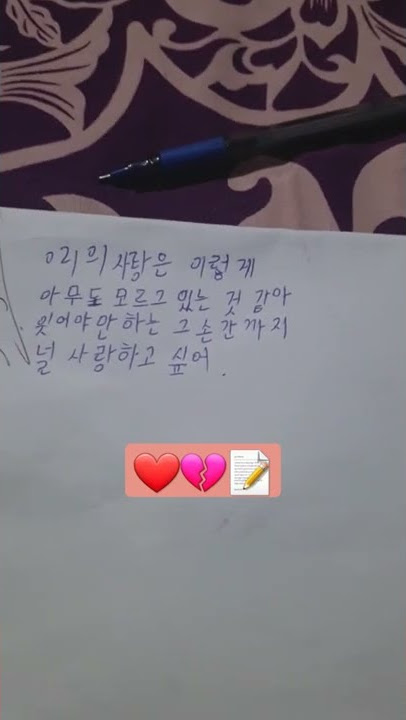 어리의 사랑은 이렇게
아무도 모르그 있는 것 같아
잊어야만 하는 그 손간까지
널 사랑하고 싶어.